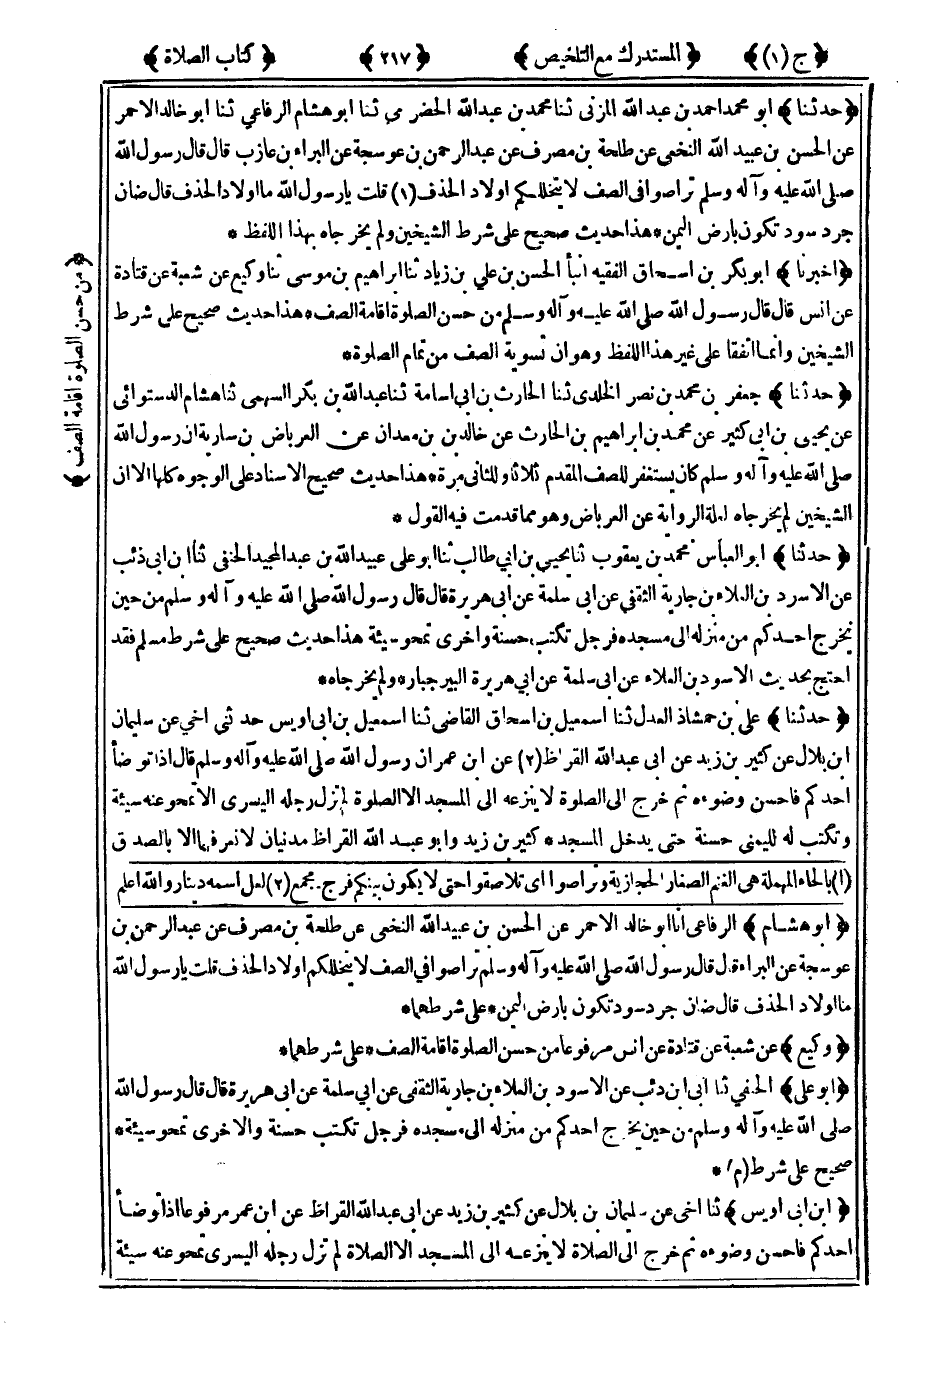 ﴿ ج (١) ﴾ ﴿ المستدرك مع التلخيص ﴾ ﴿ ٢١٧ ﴾ ﴿ كتاب الصلاة ﴾
﴿ حدثنا ﴾ ابو محمد احمد بن عبد الله المزنى ثنا محمد بن عبد الله الحضرمي ثنا ابو هشام الرفاعي ثنا ابو خالد الاحمر
عن الحسن بن عبيد الله النخعى عن طلحة بن مصرف عن عبد الرحمن بن عوسجة عن البراء بن عازب قال قال رسول الله
صلى الله عليه وآله وسلم تراصوا فى الصف لا يتخللكم اولاد الحذف (١) قلت يا رسول الله ما اولاد الحذف قال ضان
جرد سود تكون بارض اليمن * هذا حديث صحيح على شرط الشيخين ولم يخرجاه بهذا اللفظ *
﴿ اخبرنا ﴾ ابو بكر بن اسحاق الفقيه انبأ الحسن بن علي بن زياد ثنا ابراهيم بن موسى ثنا وكيع عن شعبة عن قتادة
عن انس قال قال رسول الله صلى الله عليه وآله وسلم من حسن الصلوة اقامة الصف * هذا حديث صحيح على شرط
الشيخين وانما اتفقا على غير هذا اللفظ وهو ان تسوية الصف من تمام الصلوة *
﴿ من حسن الصلوة اقامة الصف ﴾
﴿ حدثنا ﴾ جعفر بن محمد بن نصر الخلدى ثنا الحارث بن ابى اسامة ثنا عبد الله بن بكر السهمى ثنا هشام الدستوائى
عن يحيى بن ابى كثير عن محمد بن ابراهيم بن الحارث عن خالد بن معدان عن العرباض بن سارية ان رسول الله
صلى الله عليه وآله وسلم كان يستغفر للصف المقدم ثلاثا وللثانى مرة * هذا حديث صحيح الاسناد على الوجوه كلها الا ان
الشيخين لم يخرجاه لعلة الرواية عن العرباض وهو مما قدمت فيه القول *
﴿ حدثنا ﴾ ابو العباس محمد بن يعقوب ثنا يحيي بن ابي طالب ثنا ابو على عبيد الله بن عبد المجيد الحنفى ثنا ابن ابى ذئب
عن الاسود بن العلاء بن جارية الثقفى عن ابى سلمة عن ابى هريرة قال قال رسول الله صلى الله عليه وآله وسلم من حين
يخرج احدكم من منزله الى مسجده فرجل تكتب حسنة واخرى تمحو سيئة هذا حديث صحيح على شرط مسلم فقد
احتج بحديث الاسود بن العلاء عن ابى سلمة عن ابي هريرة البير جبار * ولم يخرجاه *
﴿ حدثنا ﴾ علي بن حمشاذ العدل ثنا اسمعيل بن اسحاق القاضى ثنا اسمعيل بن ابى اويس حدثنى اخي عن سليمان
ابن بلال عن كثير بن زيد عن ابى عبد الله القراظ (٢) عن ابن عمر ان رسول الله صلى الله عليه وآله وسلم قال اذا توضأ
احدكم فاحسن وضوءه ثم خرج الى الصلوة لا ينزعه الى المسجد الا الصلوة لم تزل رجله اليسرى الا تمحو عنه سيئة
وتكتب له لليمنى حسنة حتى يدخل المسجد * كثير بن زيد وابو عبد الله القراظ مدنيان لا نعرفهما الا بالصدق
(١) بالحاء المهملة هى الغنم الصغار الحجازية وتراصوا اى تلاصقوا حتى لا يكون بينكم فرج ـ مجمع (٢) لعل اسمه دينار والله اعلم
﴿ ابو هشام ﴾ الرفاعى انا ابو خالد الاحمر عن الحسن بن عبيد الله النخعى عن طلحة بن مصرف عن عبد الرحمن بن
عوسجة عن البراء قال قال رسول الله صلى الله عليه وآله وسلم تراصوا في الصف لا يتخللكم اولاد الحذف قلت يا رسول الله
ما اولاد الحذف قال ضان جرد سود تكون بارض اليمن * على شرطهما *
﴿ وكيع ﴾ عن شعبة عن قتادة عن انس مرفوعا من حسن الصلوة اقامة الصف * على شرطهما *
﴿ ابو على ﴾ الحنفي ثنا ابى ابن ذئب عن الاسود بن العلاء بن جارية الثقفى عن ابي سلمة عن ابى هريرة قال قال رسول الله
صلى الله عليه وآله وسلم من حين يخرج احدكم من منزله الى مسجده فرجل تكتب حسنة والاخرى تمحو سيئة *
صحيح على شرط (م) *
﴿ ابن ابى اويس ﴾ ثنا اخى عن سليمان بن بلال عن كثير بن زيد عن ابى عبد الله القراظ عن ابن عمر مرفوعا اذا توضأ
احدكم فاحسن وضوءه ثم خرج الى الصلاة لا ينزعه الى المسجد الا الصلاة لم تزل رجله اليسرى تمحو عنه سيئة